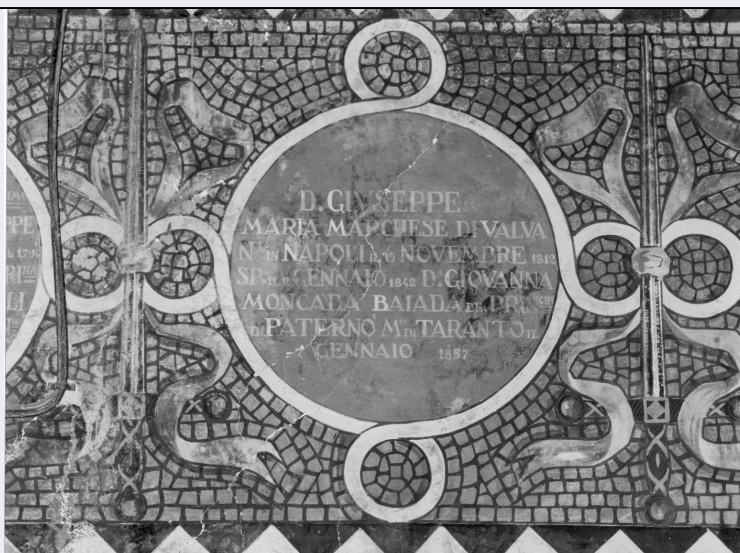 D. GIUSEPPE
MARIA MARCHESE DI VALVA
N.TO IN NAPOLI NOVEMBRE 1812
SP. GENNAIO 1842 D.A GIOVANNA
MONCADA BAIADA DEI PRINCIPI
DI PATERNO M. IN TARANTO IL
GENNAIO 1857